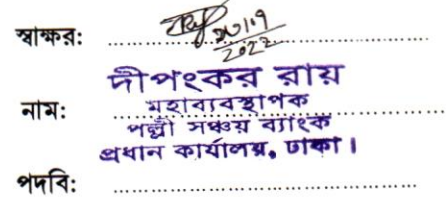 স্বাক্ষর: ........................
২০২২
দীপংকর রায়
নাম: মহাব্যবস্থাপক
পল্লী সঞ্চয় ব্যাংক
প্রধান কার্যালয়, ঢাকা।
পদবি: ........................